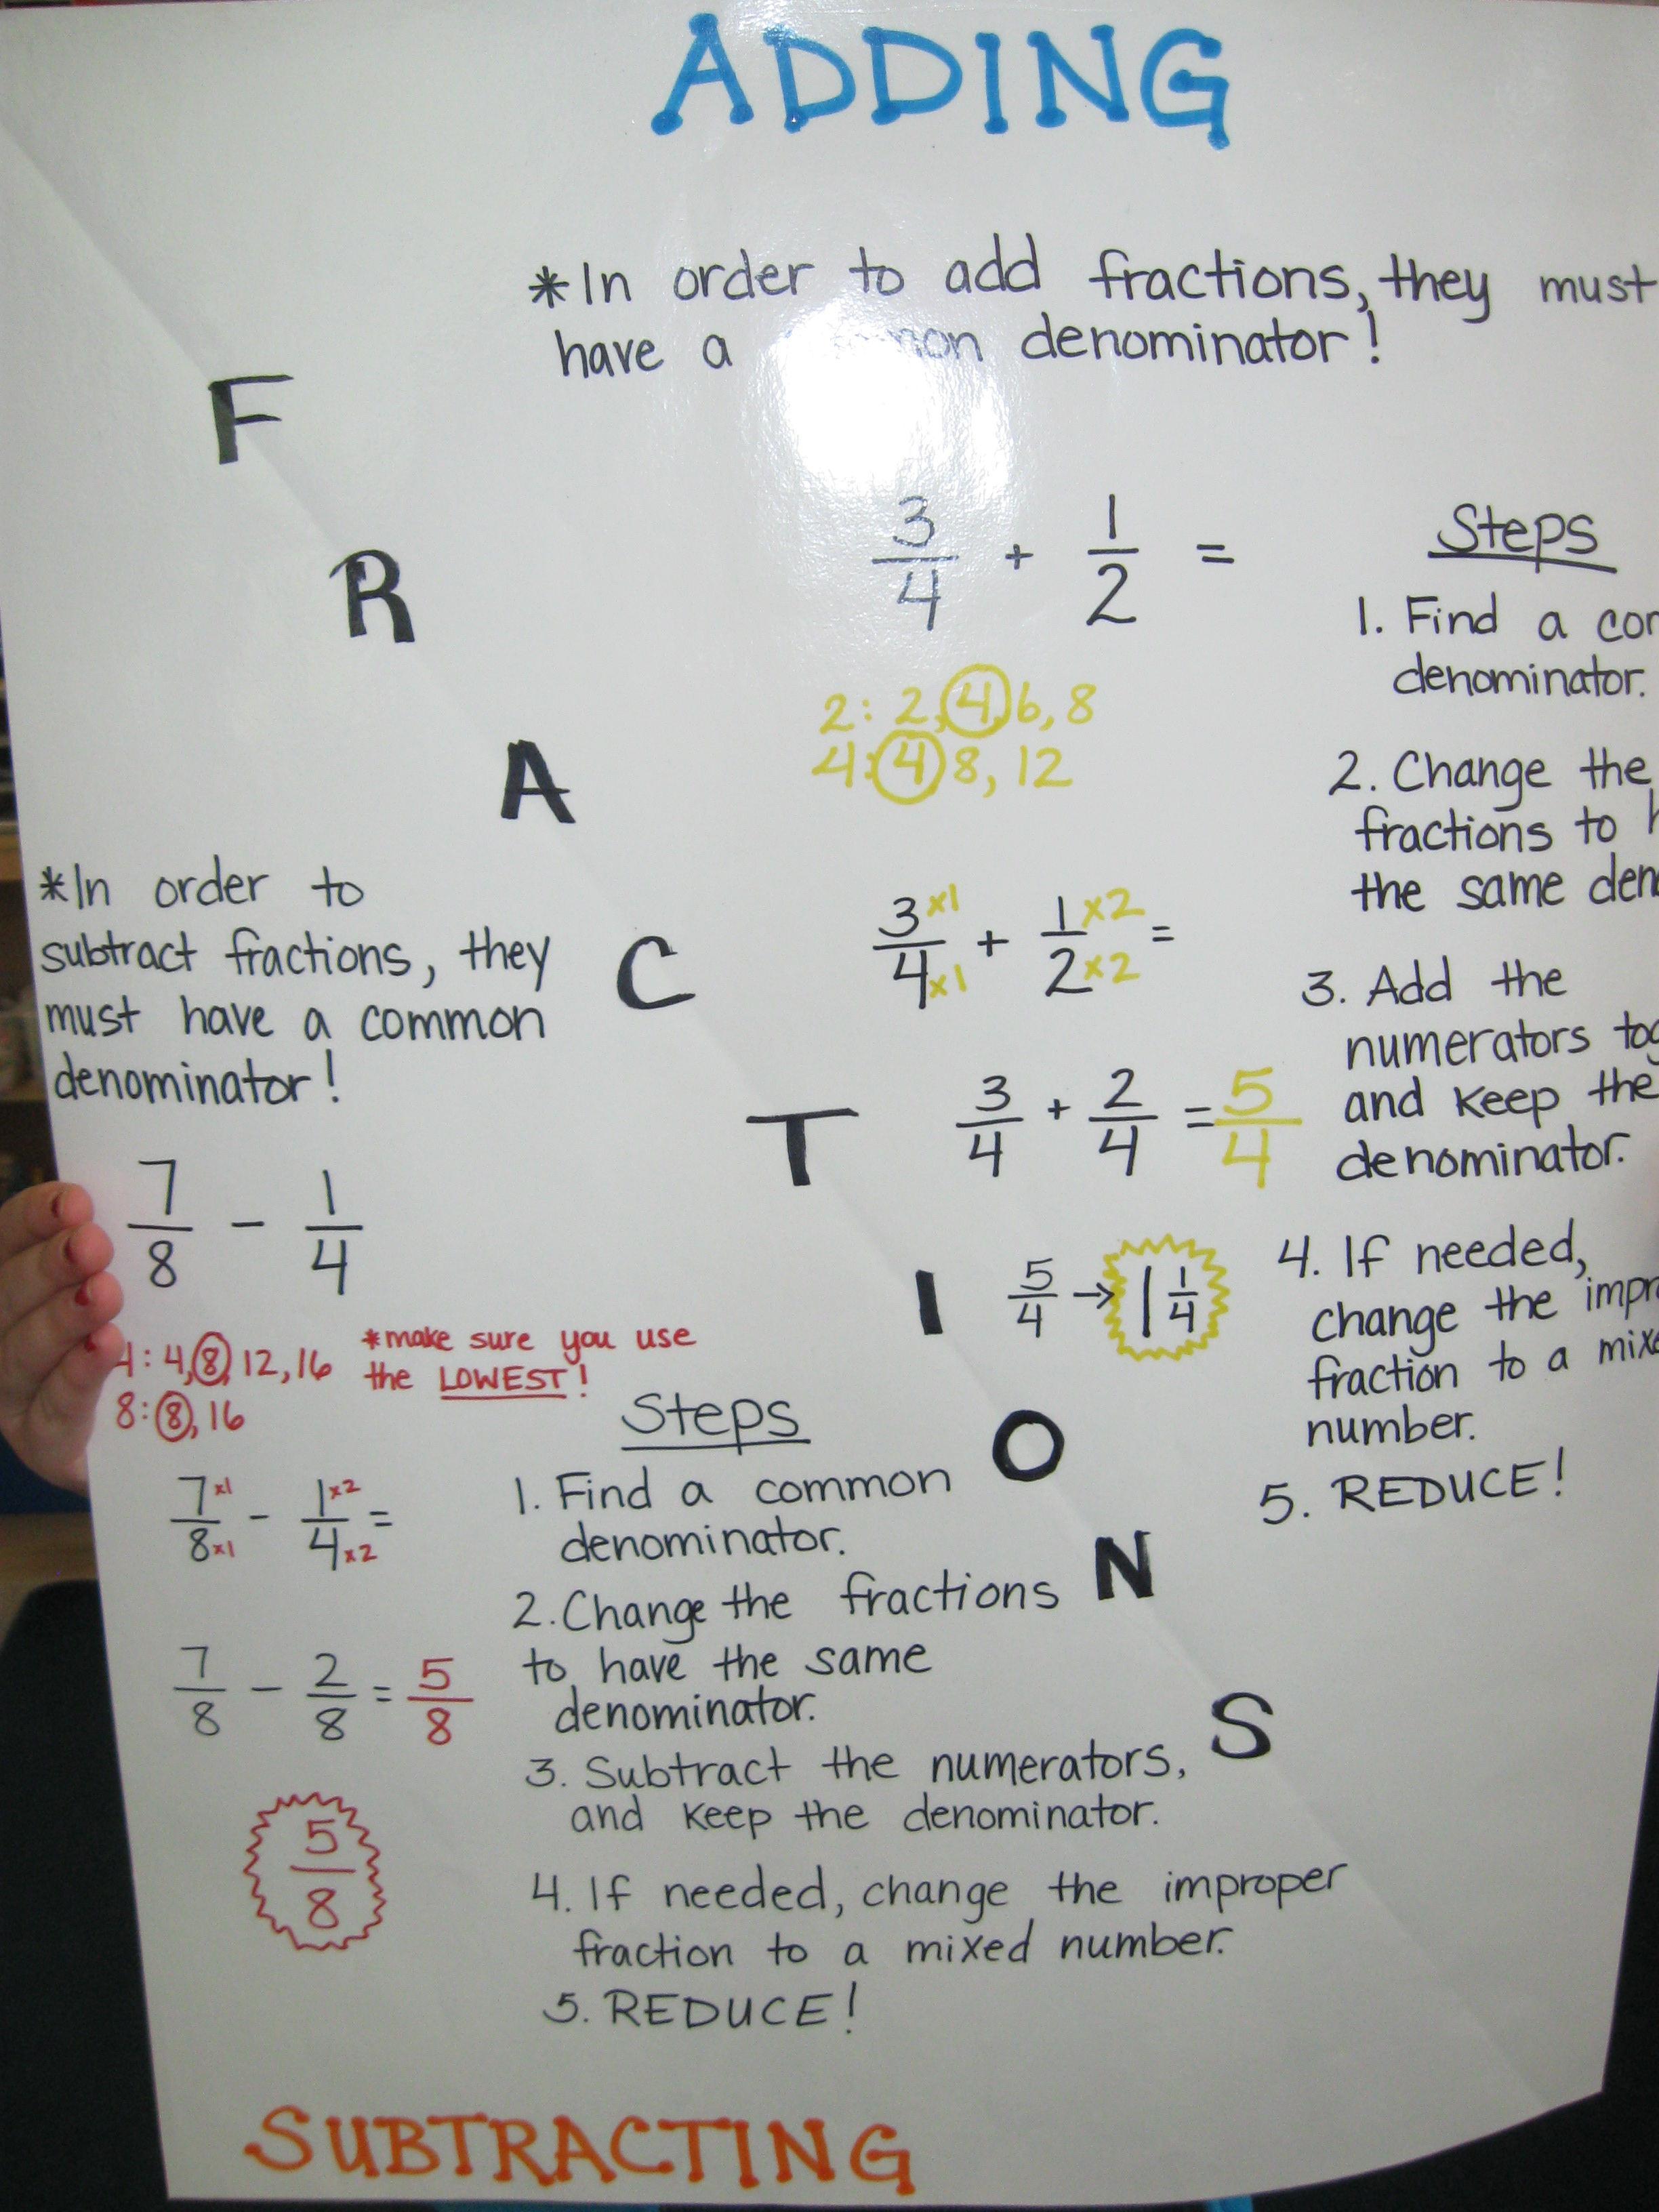 ADDING
*In order to add fractions, they must
have a denominator!
F
R
A
C
T
I
O
N
S
3/4 + 1/2 =
2: 2, 4, 6, 8
4: 4 8, 12
3 x1/4 x1 + 1 x2/2 x2 =
3/4 + 2/4 = 5/4
5/4 → 1 1/4
Steps
1. Find a
denominator.
2. Change the
fractions to
the same
3. Add the
numerators
and keep the
denominator.
4. If needed,
change the
fraction to a
number.
5. REDUCE!
*In order to
subtract fractions, they
must have a common
denominator!
7/8 - 1/4
4: 4, 8, 12, 16
8: 8, 16
*make sure you use
the LOWEST!
7 x1/8 x1 - 1 x2/4 x2 =
7/8 - 2/8 = 5/8
5/8
Steps
1. Find a common
denominator.
2. Change the fractions
to have the same
denominator.
3. Subtract the numerators,
and keep the denominator.
4. If needed, change the improper
fraction to a mixed number.
5. REDUCE!
SUBTRACTING